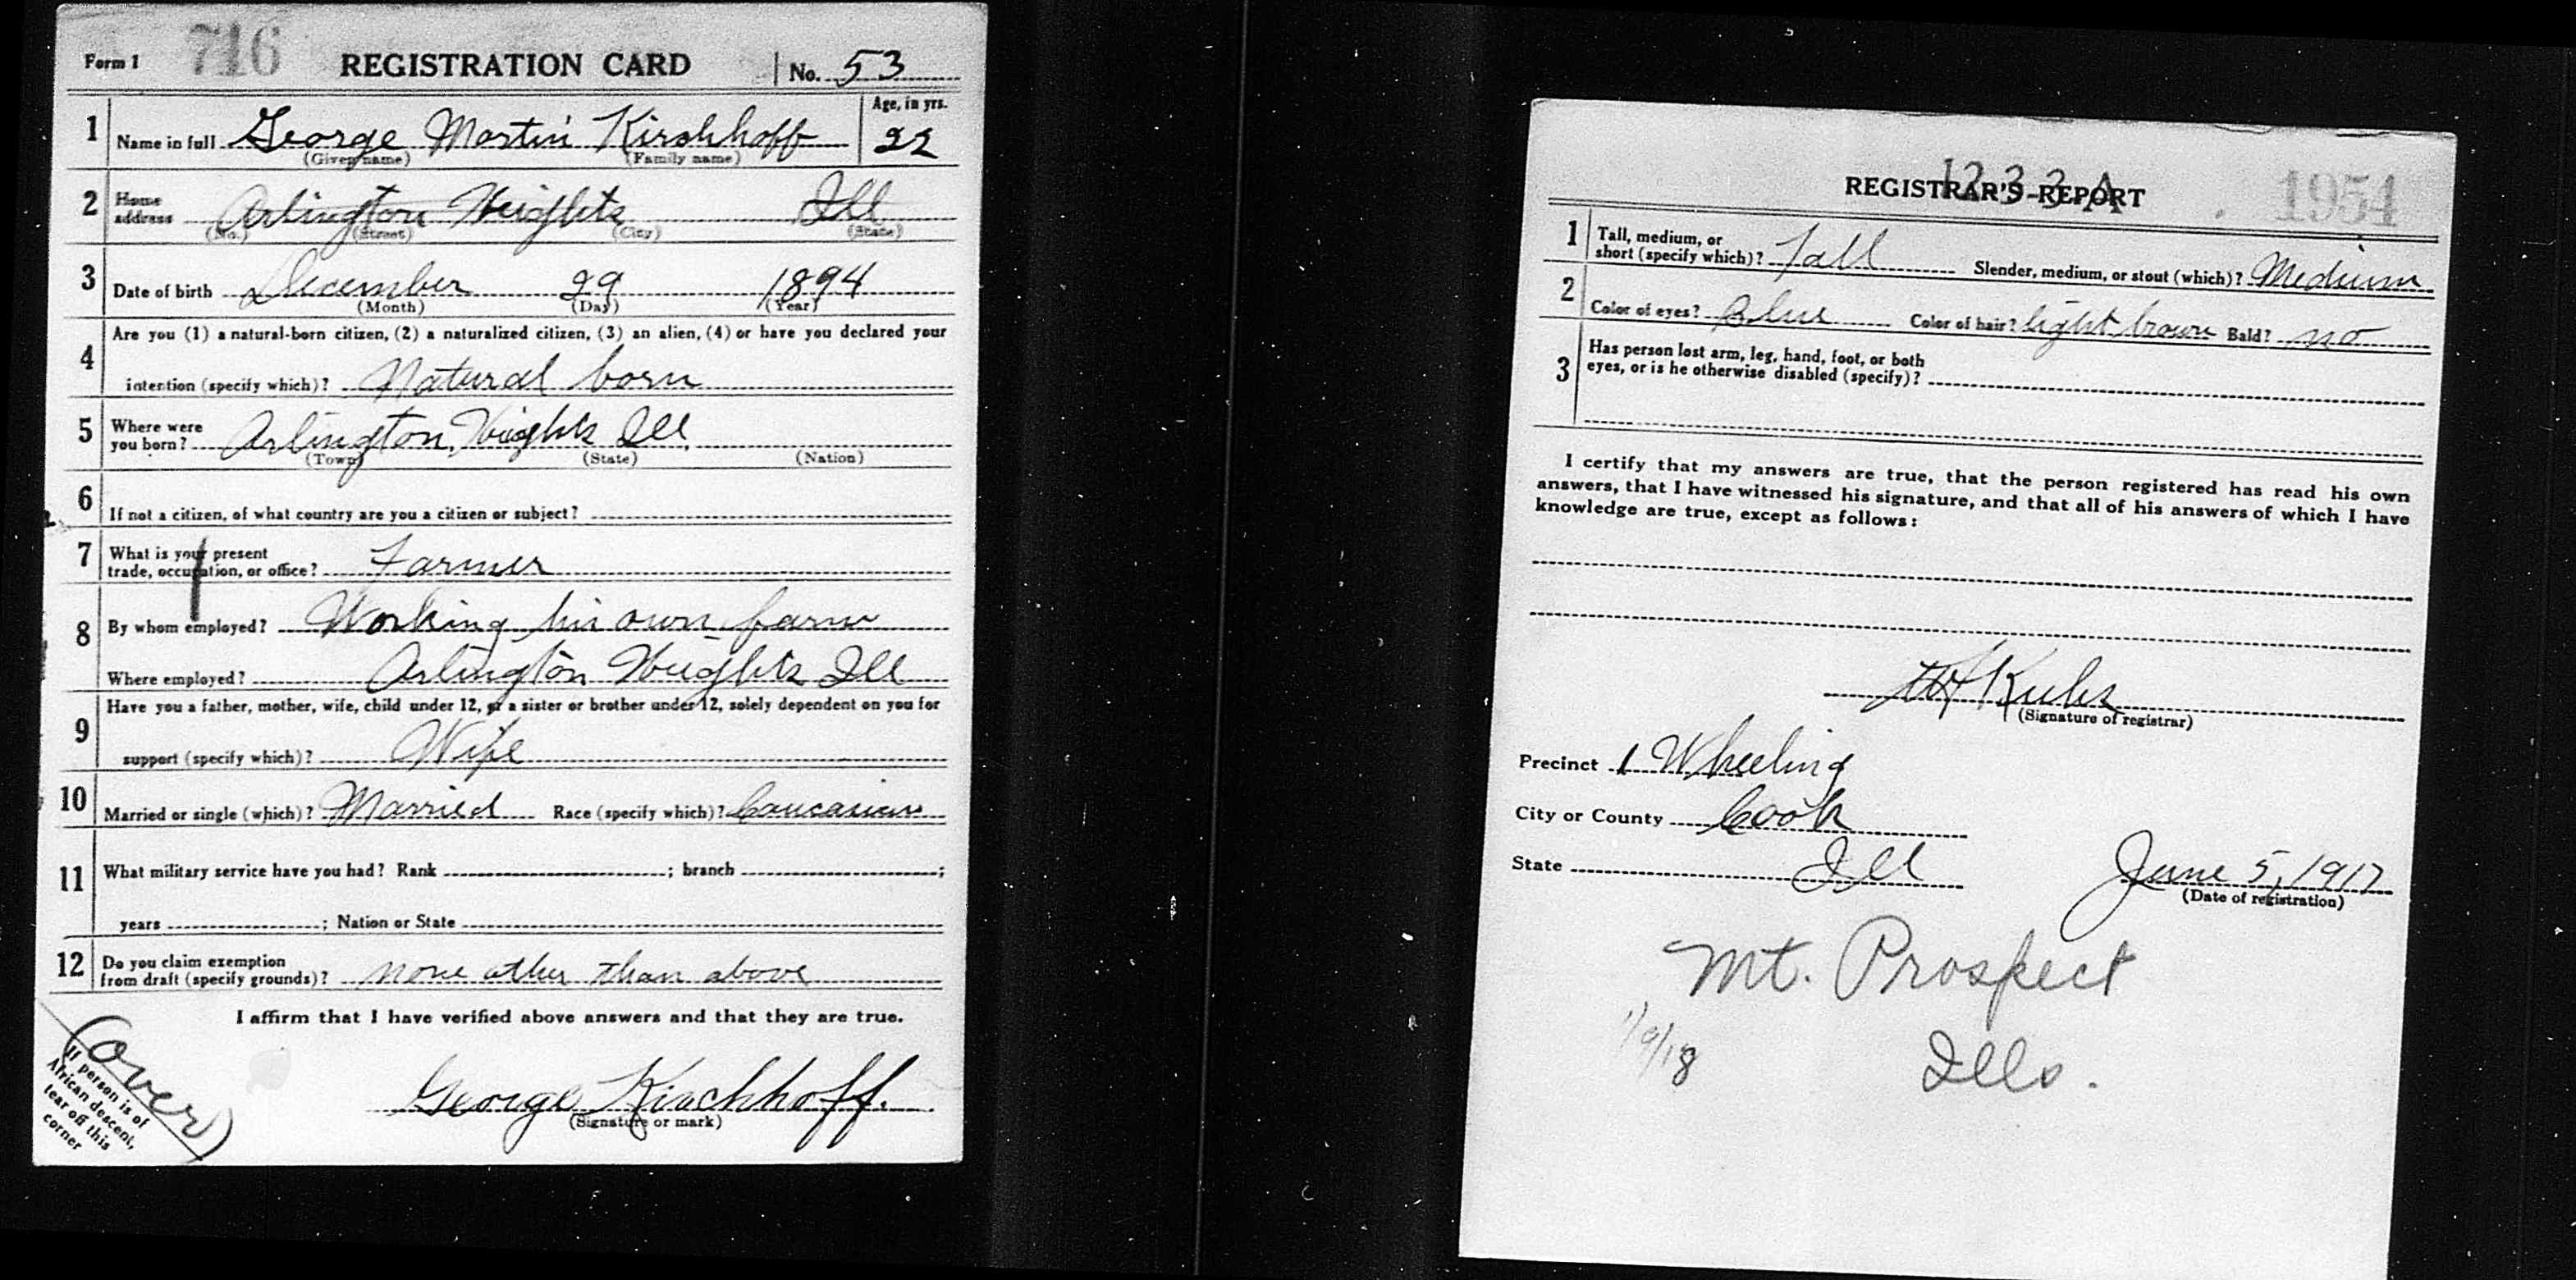 Form 1 716 REGISTRATION CARD No. 53
1 Name in full George Martin Kirshhoff Age, in yrs. 22
(Given name) (Family name)
2 Home address Arlington Heights Ill
(No.) (Street) (City) (State)
3 Date of birth December 29 1894
(Month) (Day) (Year)
4 Are you (1) a natural-born citizen, (2) a naturalized citizen, (3) an alien, (4) or have you declared your
intention (specify which)? Natural born
5 Where were you born? Arlington Heights Ill
(Town) (State) (Nation)
6 If not a citizen, of what country are you a citizen or subject?
7 What is your present
trade, occupation, or office? Farmer
8 By whom employed? Working his own farm
Where employed? Arlington Heights Ill
9 Have you a father, mother, wife, child under 12, or a sister or brother under 12, solely dependent on you for
support (specify which)? Wife
10 Married or single (which)? Married Race (specify which)? Caucasian
11 What military service have you had? Rank ; branch ;
years ; Nation or State
12 Do you claim exemption
from draft (specify grounds)? none other than above
I affirm that I have verified above answers and that they are true.
George Kirchhoff.
(Signature or mark)
(over)
If person is of
African descent,
tear off this
corner
1233-A
REGISTRAR'S REPORT 1954
1 Tall, medium, or
short (specify which)? Tall Slender, medium, or stout (which)? Medium
2 Color of eyes? Blue Color of hair? light brown Bald? no
3 Has person lost arm, leg, hand, foot, or both
eyes, or is he otherwise disabled (specify)?
I certify that my answers are true, that the person registered has read his own
answers, that I have witnessed his signature, and that all of his answers of which I have
knowledge are true, except as follows:
Kuhs
(Signature of registrar)
Precinct 1 Wheeling
City or County Cook
State Ill June 5, 1917
(Date of registration)
Mt. Prospect
1/9/18 Ills.